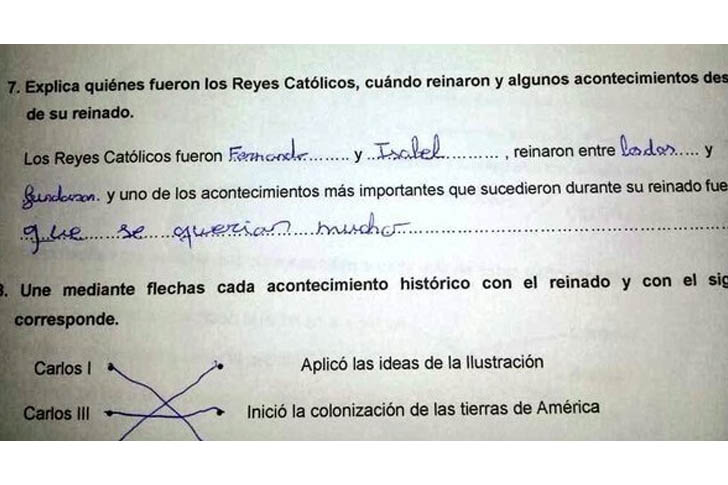 7. Explica quiénes fueron los Reyes Católicos, cuándo reinaron y algunos acontecimientos des
de su reinado.
Los Reyes Católicos fueron Fernando......... y ..Isabel............ , reinaron entre los dos..... y
fundaron. y uno de los acontecimientos más importantes que sucedieron durante su reinado fue
que se querian mucho
3. Une mediante flechas cada acontecimiento histórico con el reinado y con el sig
corresponde.
Carlos I Aplicó las ideas de la Ilustración
Carlos III Inició la colonización de las tierras de América